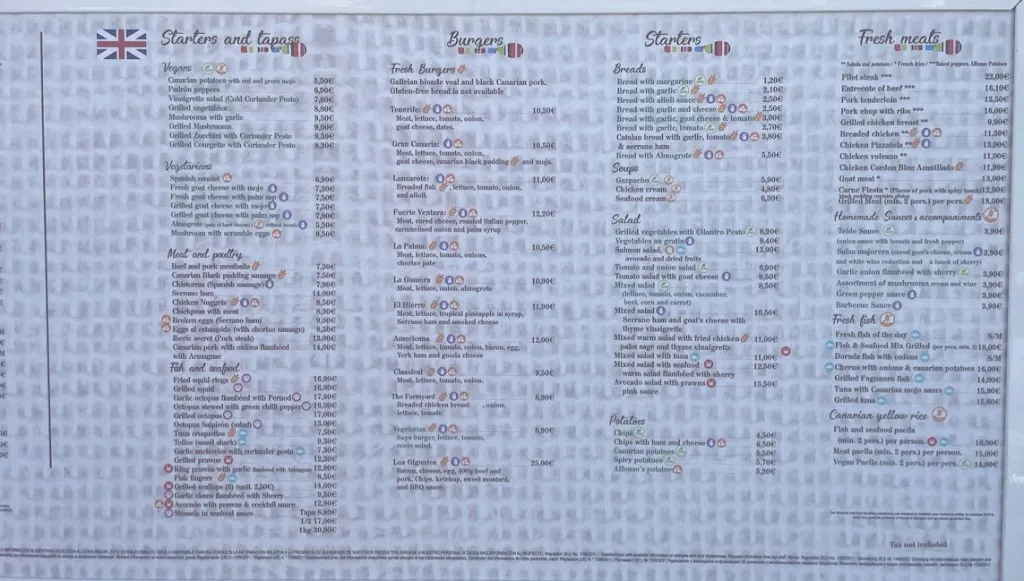 Starters and tapass
Vegans
Canarian potatoes with red and green mojo 5,50€
Padrón peppers 6,90€
Vinaigrette salad (Cold Coriander Pesto) 7,80€
Grilled vegetables 8,80€
Mushrooms with garlic 9,50€
Grilled Mushrooms 9,00€
Grilled Zucchini with Coriander Pesto 8,30€
Grilled Courgette with Coriander Pesto 8,30€
Vegetarians
Spanish omelet 6,90€
Fresh goat cheese with mojo 7,30€
Fresh goat cheese with palm sap 7,50€
Grilled goat cheese with mojo 7,50€
Grilled goat cheese with palm sap 7,80€
Almogrote 5,50€
Mushroom with scramble eggs 9,50€
Meat and poultry
Beef and pork meatballs 7,50€
Canarian Black pudding sausage 7,50€
Chistorras (Spanish sausage) 7,90€
Serrano ham 14,00€
Chicken Nuggets 8,50€
Chickpeas with meat 8,50€
Broken eggs (Serrano ham) 9,90€
Eggs al estampido (with chorizo sausage) 8,50€
Iberic secret (Pork steak) 13,00€
Canarian pork with onions flambéed 14,00€
with Armagnac
Fish and seafood
Fried squid rings 16,90€
Grilled squid 16,90€
Garlic octopus flambéed with Pernod 17,90€
Octopus stewed with green chilli pepper 16,00€
Grilled octopus 17,00€
Octopus Salpicón (salad) 15,00€
Tuna croquettes 7,50€
Tollos (small shark) 9,30€
Garlic anchovies with coriander pesto 7,50€
Grilled prawns 12,50€
King prawns with garlic flambéed with Armagnac 12,90€
Fish fingers 8,50€
Grilled scallops (6) (unit. 2,50€) 14,00€
Garlic clams flambéed with Sherry 9,50€
Avocado with prawns & rocktail sauce 12,90€
Mussels in seafood sauce Tapa 8,90€
1/2 17,00€
1kg 30,00€
Burgers
Fresh Burgers
Galician blonde veal and black Canarian pork.
Gluten-free bread is not available
Tenerife: 10,30€
Meat, lettuce, tomato, onion,
goat cheese, dates.
Gran Canaria: 10,50€
Meat, lettuce, tomato, onion,
goat cheese, canarian black pudding and mojo.
Lanzarote: 11,00€
Breaded fish, lettuce, tomato, onion,
and alioli.
Fuerte Ventura: 12,20€
Meat, cured cheese, roasted italian pepper,
caramelised onion and palm syrup
La Palma: 10,50€
Meat, lettuce, tomato, onions,
chorizo pate
La Gomera 10,90€
Meat, lettuce, onion, almogrote
El Hierro 11,90€
Meat, lettuce, tropical pineapple in syrup,
Serrano ham and smoked cheese
Americana 12,00€
Meat, lettuce, tomato, onion, bacon, egg,
York ham and gouda cheese
Classical 9,50€
Meat, lettuce, tomato, onion.
The Farmyard 8,90€
Breaded chicken breast , onion,
lettuce, tomato
Vegetarian 8,90€
Soya burger, lettuce, tomato,
onion.
Los Gigantes 25,00€
Bacon, cheese, egg, 400g beef and
pork, Chips, ketchup, sweet mustard,
and BBQ sauce
Starters
Breads
Bread with margarine 1,20€
Bread with garlic 2,10€
Bread with alioli sauce 2,50€
Bread with garlic and cheese 2,50€
Bread with garlic, goat cheese & tomato 3,00€
Bread with garlic, tomato 2,70€
Catalan bread with garlic, tomato 3,80€
& serrano ham
Bread with Almogrote 5,50€
Soups
Gazpacho 5,90€
Chicken cream 4,80€
Seafood cream 6,30€
Salad
Grilled vegetables with Cilantro Pesto 8,90€
Vegetables au gratin 9,40€
Salmon salad, 13,90€
avocado and dried fruits
Tomato and onion salad 6,90€
Tomato salad with goat cheese 8,50€
Mixed salad 8,50€
(lettuce, tomato, onion, cucumber,
beet, corn and carrot)
Mixed salad 10,50€
Serrano ham and goat's cheese with
thyme vinaigrette
Mixed warm salad with fried chicken 11,00€
palm sage and thyme vinaigrette
Mixed salad with tuna 11,00€
Mixed salad with seafood 12,50€
warm salad flambéed with sherry
Avocado salad with prawns 13,50€
pink sauce
Potatoes
Chips 4,50€
Chips with ham and cheese 6,50€
Canarian potatoes 5,50€
Spicy potatoes 5,70€
Alfonso's potatoes 5,20€
Fresh meats
** Salads and potatoes / * French fries / ***Baked peppers, Alfonso Potatoes
Filet steak *** 22,00€
Entrecote of beef *** 16,10€
Pork tenderloin *** 13,50€
Pork chop with ribs *** 16,00€
Grilled chicken breast ** 9,90€
Breaded chicken ** 11,30€
Chicken Pizzaiola ** 13,90€
Chicken volcano ** 11,00€
Chicken Cordon Bleu Acantilado 11,30€
Goat meat * 13,00€
Carne Fiesta * (Pieces of pork with spicy touch) 12,90€
Grilled Meat (min. 2 pers.) per pers. 18,00€
Homemade Sauces & accompaniments
Teide Sauce 3,90€
(onion sauce with tomato and fresh pepper)
Salsa majorera (cured goat's cheese, cream 3,50€
and white wine reduction and a touch of sherry)
Garlic onion flambéed with sherry 3,90€
Assortment of mushrooms cream and wine 3,90€
Green pepper sauce 3,90€
Barbecue Sauce 3,90€
Fresh fish
Fresh fish of the day S/M
Fish & Seafood Mix Grilled (per pers. min. 2) 18,00€
Dorada fish with onions S/M
Cherne with onions & canarian potatoes 16,00€
Grilled Fogonero fish 14,00€
Tuna with Canarian mojo sauce 15,90€
Grilled tuna 15,80€
Canarian yellow rice
Fish and seafood paella
(min. 2 pers.) per person. 16,90€
Meat paella (min. 2 pers.) per person. 15,00€
Vegan Paella (min. 2 pers.) 14,00€
Tax not included